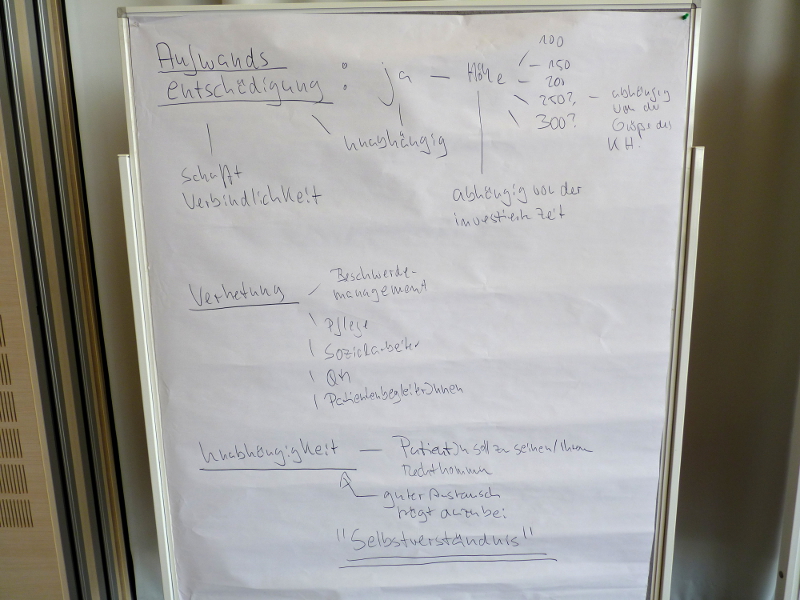 Aufwands
entschädigung : ja — Höhe
100
150
200
250?
300?
abhängig
von der
Größe des
KH!
unabhängig
schafft
Verbindlichkeit
abhängig von der
investierten Zeit
Vertretung
Beschwerde-
management
Pflege
Sozialarbeiter
QM
PatientenbegleiterInnen
Unabhängigkeit — PatientIn soll zu seinen/ihrem
Recht kommen
guter Austausch
trägt dazu bei
"Selbstverständnis"